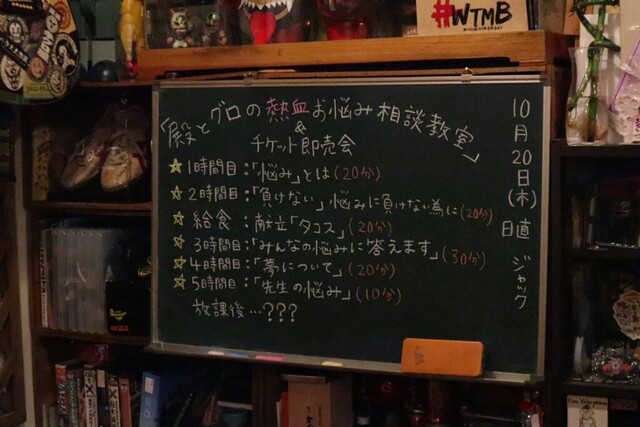 #WTMB
「殿とグロの熱血お悩み相談教室」
&
チケット即売会
☆1時間目:「悩み」とは(20分)
☆2時間目:「負けない」悩みに負けない為に(20分)
☆給食:献立「タコス」(20分)
☆3時間目:「みんなの悩みに答えます」(30分)
☆4時間目:「夢について」(20分)
☆5時間目:「先生の悩み」(10分)
放課後…???
10月20日(木)
日直 ジャック